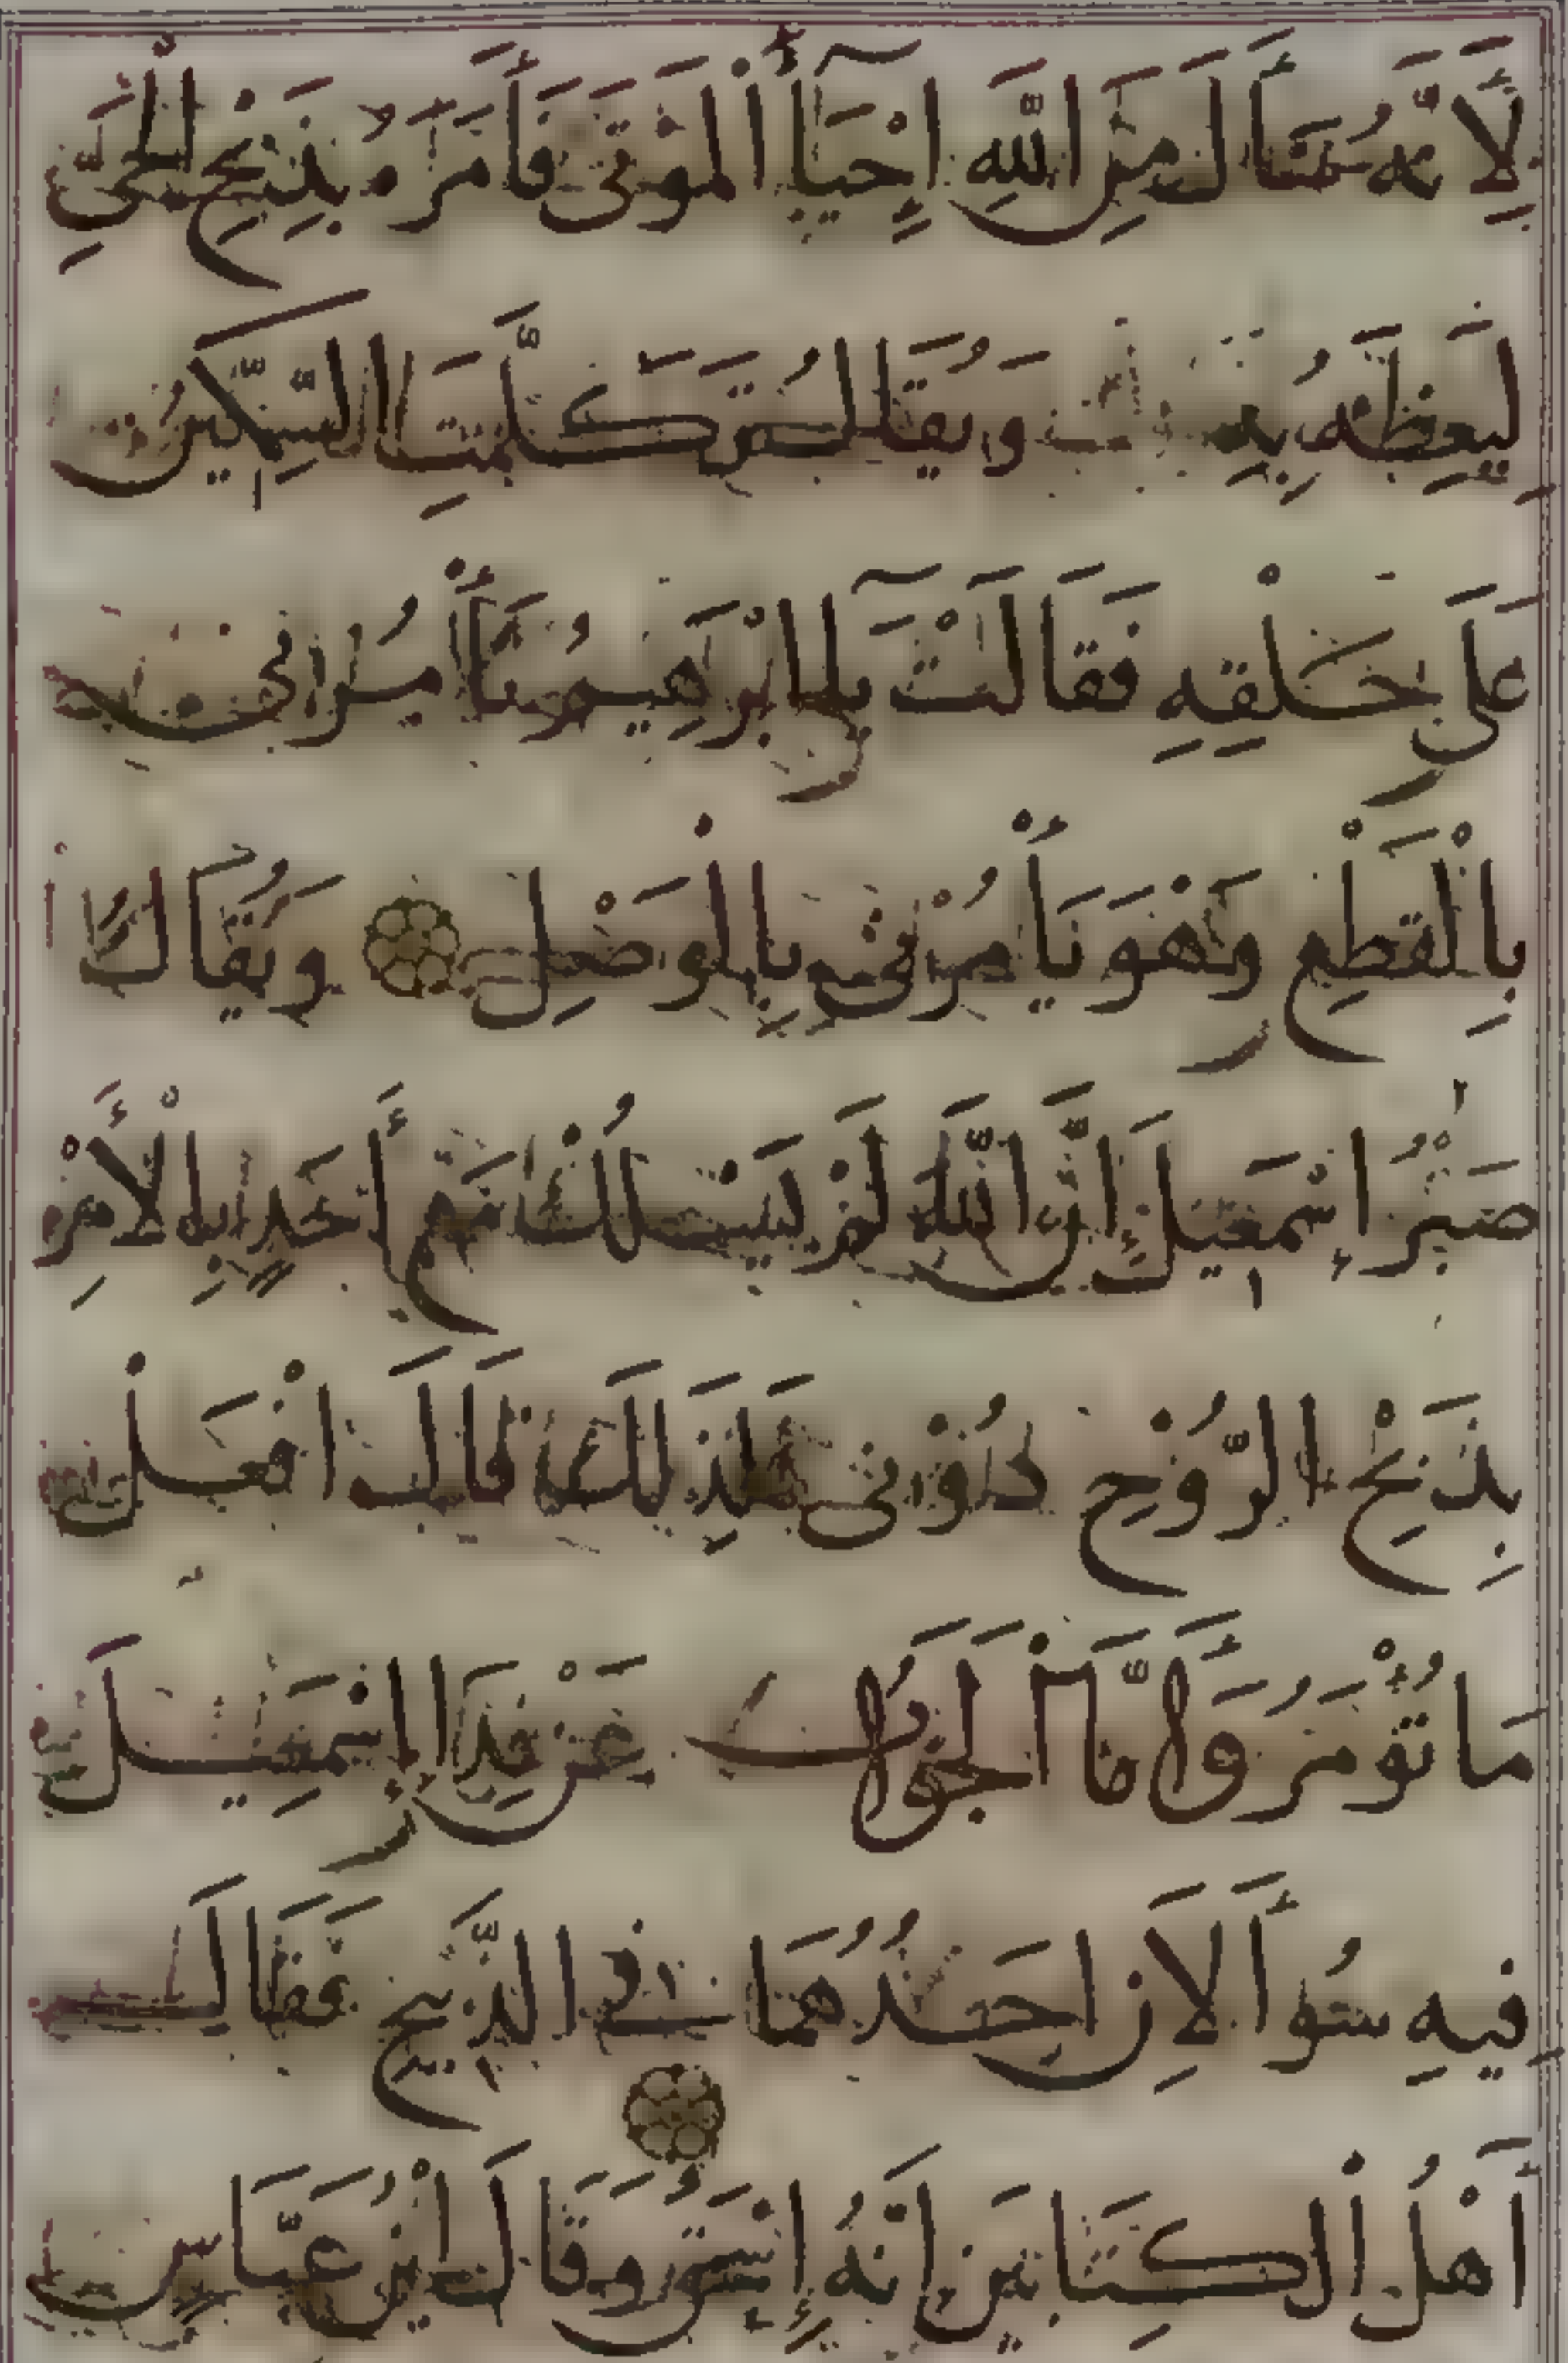 لِأَنَّهُ سَأَلَ مِنَ اللَّهِ إِحْيَآءَ الْمَوْتَى فَأَمَرَهُ بِذَبْحِ الْحَيِّ
لِيَعِظَهُ بِهِ وَيُقَالُ تَكَلَّمَتِ السِّكِّينُ
عَلَى حَلْقِهِ فَقَالَتْ يَا إِبْرَاهِيمُ تَأْمُرُنِي
بِالْقَطْعِ وَهُوَ يَأْمُرُنِي بِالْوَصْلِ وَيُقَالُ
صَبْرُ إِسْمَعِيلَ إِنَّ اللَّهَ لَمْ أَحَدٍ بِالْأَمْرِ
بِذَبْحِ الرُّوحِ دُونِي فَلِذَلِكَ قَالَ افْعَلْ
مَا تُؤْمَرُ وَأَمَّا الْجَوَابُ عَنْ فِدَا إِسْمَعِيلَ
فِيهِ سُوأَلَانِ احَدُهُمَا فِي الذَّبِيحِ فَقَالَ
أَهْلُ الْكِتَابَيْنِ إِنَّهُ إِسْحَقُ وَقَالَ ابْنُ عَبَّاسٍ